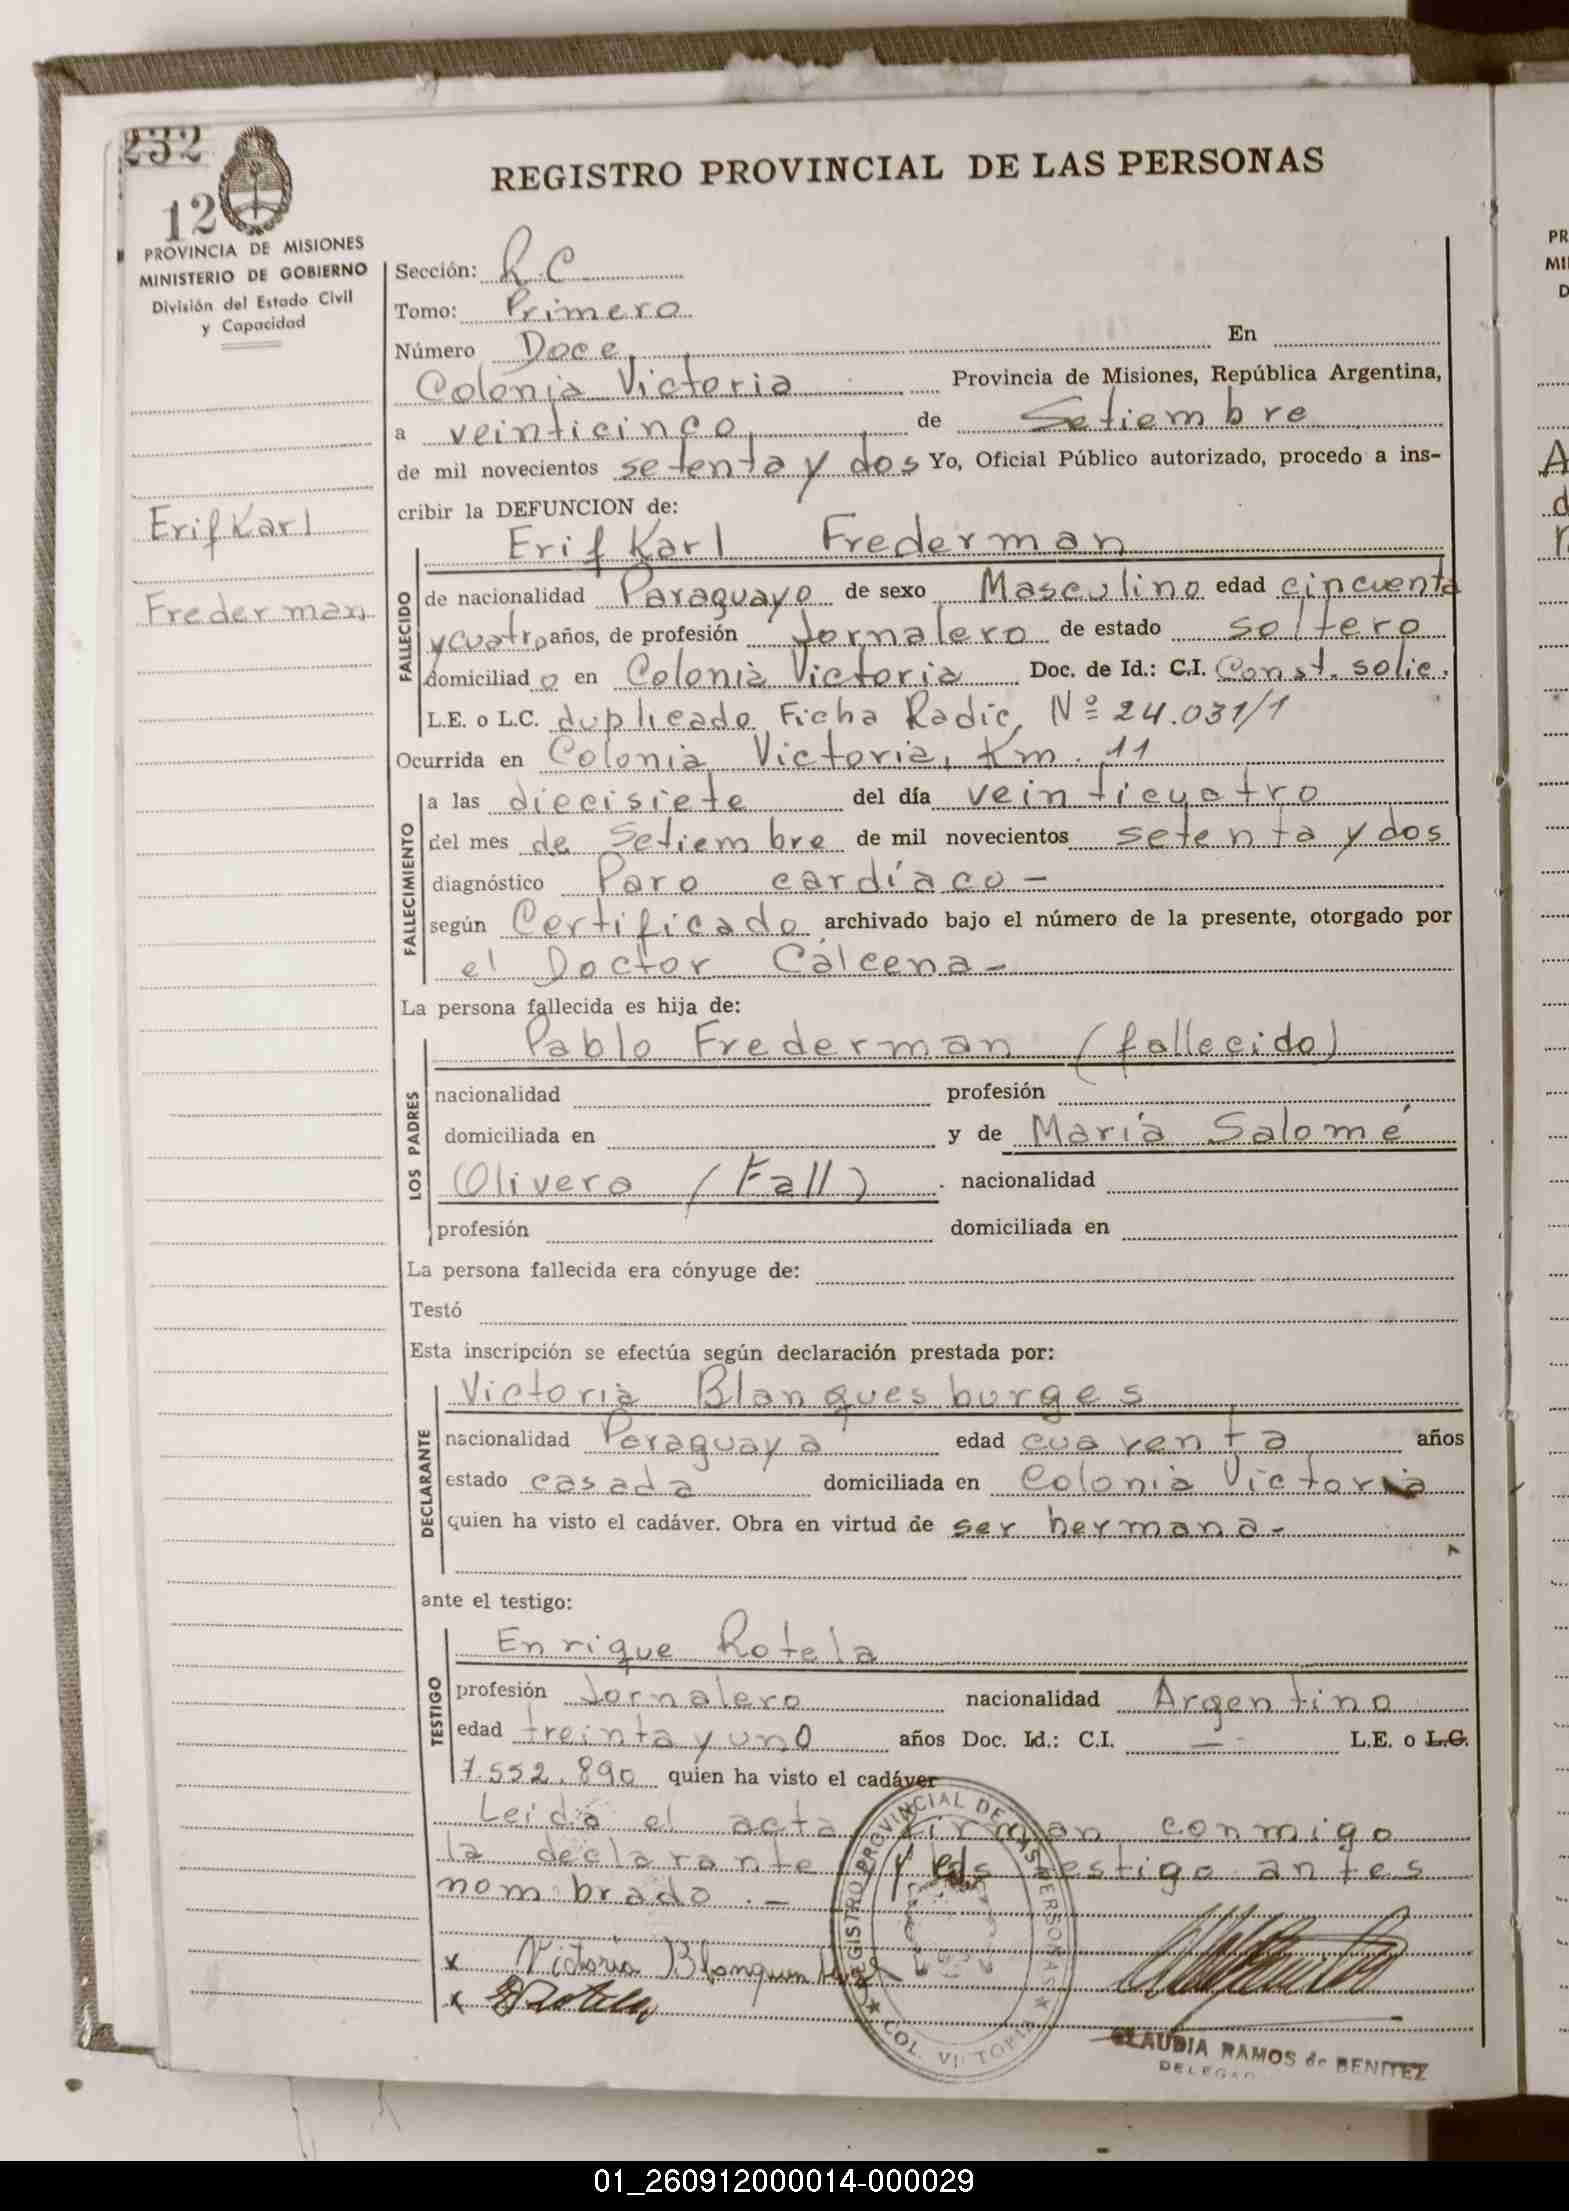 232
12
REGISTRO PROVINCIAL DE LAS PERSONAS
PROVINCIA DE MISIONES
MINISTERIO DE GOBIERNO
División del Estado Civil
y Capacidad
Erif Karl
Frederman
Sección: R.C
Tomo: Primero
Número Doce, En
Colonia Victoria Provincia de Misiones, República Argentina,
a veinticinco, de Setiembre
de mil novecientos setenta y dos Yo, Oficial Público autorizado, procedo a ins-
cribir la DEFUNCION de:
Erif Karl Frederman
FALLECIDO
de nacionalidad Paraguayo de sexo Masculino edad cincuenta
y cuatro años, de profesión Jornalero de estado soltero
domiciliado en Colonia Victoria Doc. de Id.: C.I. Const. solic.
L.E. o L.C. duplicado Ficha Radic. Nº 24.031/1
Ocurrida en Colonia Victoria, Km. 11
FALLECIMIENTO
a las diecisiete del día veinticuatro
del mes de Setiembre de mil novecientos setenta y dos
diagnóstico Paro cardíaco -
según Certificado archivado bajo el número de la presente, otorgado por
el Doctor Calcena -
La persona fallecida es hija de:
LOS PADRES
Pablo Frederman (fallecido)
nacionalidad profesión
domiciliada en y de María Salomé
Olivera (Fall) nacionalidad
profesión domiciliada en
La persona fallecida era cónyuge de:
Testó
Esta inscripción se efectúa según declaración prestada por:
DECLARANTE
Victoria Blanquesburges
nacionalidad Paraguaya edad cuarenta años
estado casada domiciliada en Colonia Victoria
quien ha visto el cadáver. Obra en virtud de ser hermana -
ante el testigo:
TESTIGO
Enrique Rotela
profesión Jornalero nacionalidad Argentino
edad treinta y uno años Doc. Id.: C.I. — L.E. o L.C.
7.552.890 quien ha visto el cadáver
Leida el acta, firman conmigo
la declarante y el testigo antes
nombrado. -
x Victoria
x E Rotela
REGISTRO PROVINCIAL DE LAS PERSONAS ★ COL. VICTORIA ★
CLAUDIA RAMOS de BENITEZ
DELEGAD
01_260912000014-000029